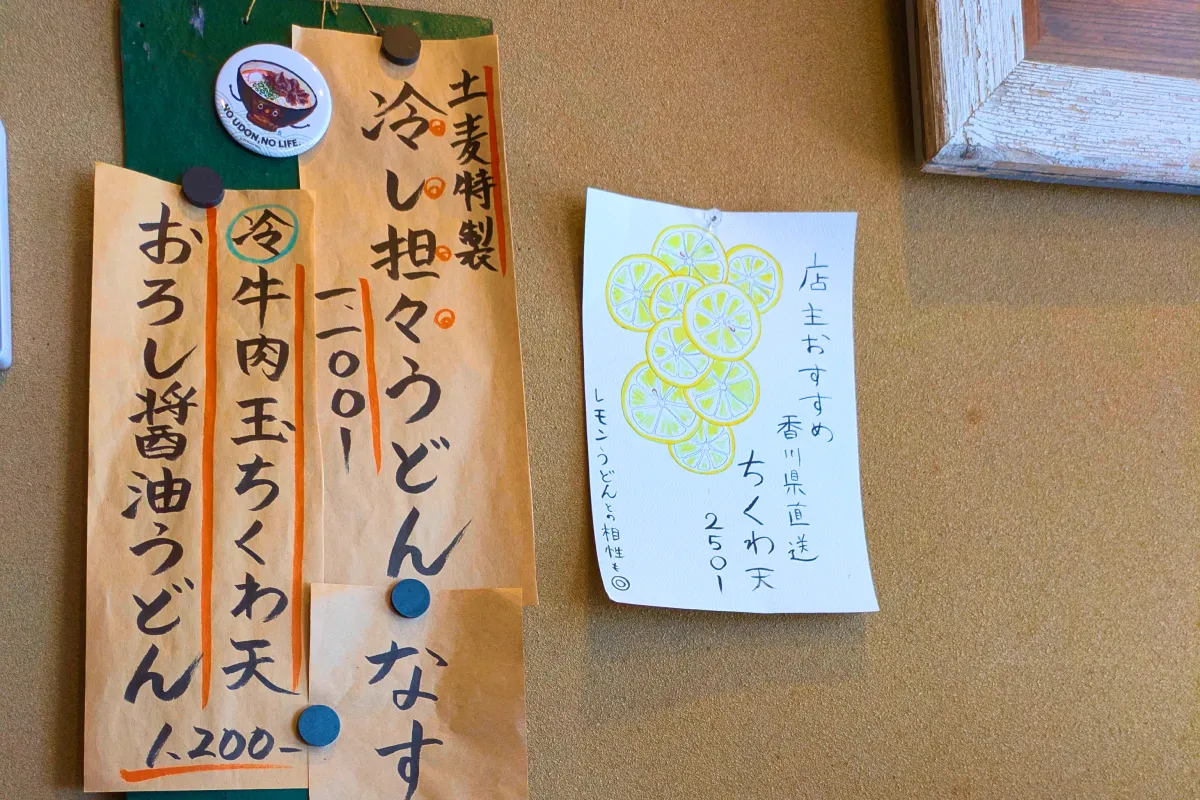 土麦特製
冷し担々うどん
一、一〇〇ー
なす
冷牛肉玉ちくわ天
おろし醤油うどん
1,200-
YO UDON, NO LIFE.
店主おすすめ
香川県直送
ちくわ天
250ー
レモンうどんとの相性も◎